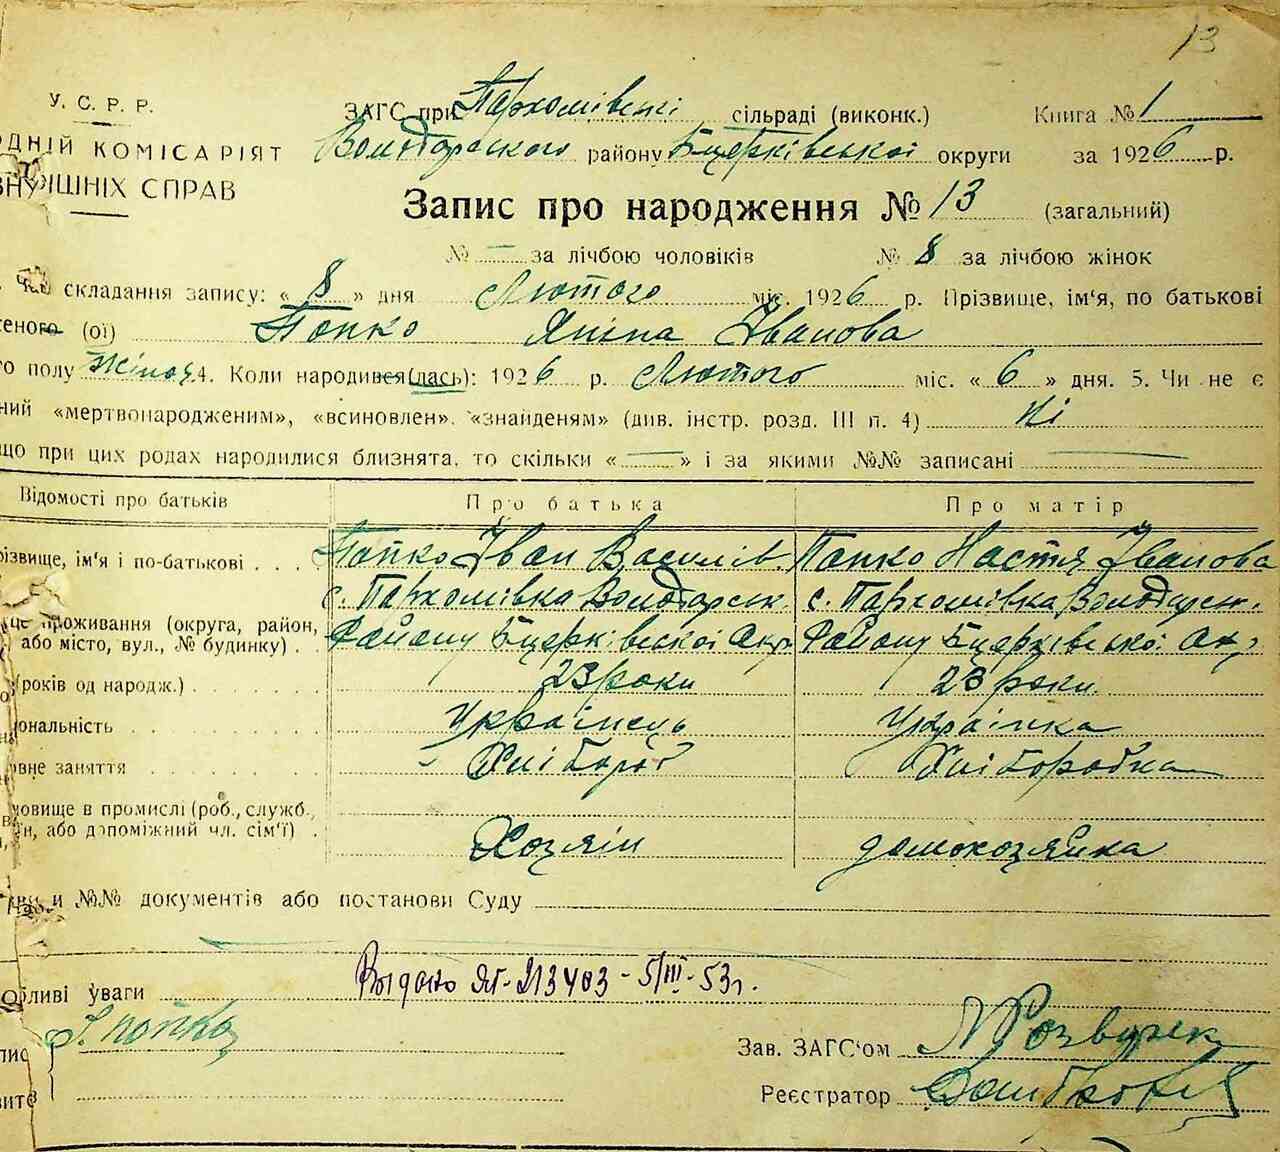 13
У. С. Р. Р.
ЗАГС при Пархомівскі сільраді (виконк.) Книга № 1
ОДНІЙ КОМІСАРІЯТ
Володарского району Бцерківської округи за 1926 р.
ВНУТРІШНІХ СПРАВ
Запис про народження № 13 (загальний)
№ — за лічбою чоловіків № 8 за лічбою жінок
Час складання запису: « 8 » дня Лютого міс. 1926 р. Прізвище, ім'я, по батькові
еного (ої) Попко Яніна Іванова
о полу жіноч. 4. Коли народився (лась): 1926 р. Лютого міс. « 6 » дня. 5. Чи не є
ний «мертвонародженим», «всиновлен». «знайденям» (див. інстр. розд. III п. 4) Ні
що при цих родах народилися близнята, то скільки « — » і за якими №№ записані —
Відомості про батьків Про батька Про матір
різвище, ім'я і по-батькові . . . . Попко Іван Василів. Попко Настя Іванова
с. Пархомівка Володарськ. с. Пархомівка Володарськ.
це проживання (округа, район,
або місто, вул., № будинку) . . Району Бцерківської Окр. Району Бцерківської Окр.
(років од народж.) . . . . . . . 23 роки 23 роки.
іональність . . . . . . . . . Українець Українка
овне заняття . . . . . . . . Хлібороб Хліборобка
новище в промислі (роб., служб.,
н, або допоміжний чл. сім'ї) . Хозяін домохозяйка
и №№ документів або постанови Суду
обливі уваги Выдано ЯГ-213403 - 5/III - 53г.
Попко
Зав. ЗАГС'ом
пис
Реєстратор